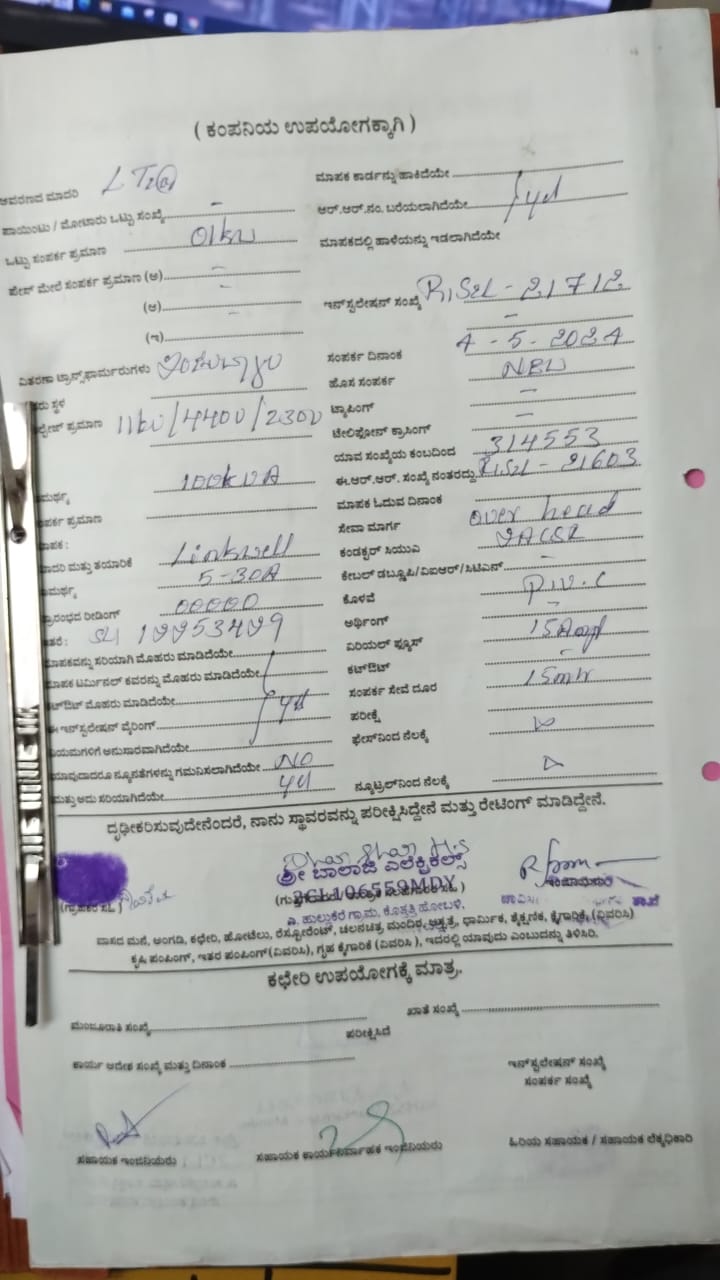 ( ಕಂಪನಿಯ ಉಪಯೋಗಕ್ಕಾಗಿ )
ಆವರಣದ ಮಾದರಿ LT2(a) ಮಾಪಕ ಕಾರ್ಡನ್ನು ಹಾಕಿದೆಯೇ
ಪಾಯಿಂಟು / ಮೋಟಾರು ಒಟ್ಟು ಸಂಖ್ಯೆ - ಆರ್.ಆರ್.ನಂ. ಬರೆಯಲಾಗಿದೆಯೇ yes
ಒಟ್ಟು ಸಂಪರ್ಕ ಪ್ರಮಾಣ 01kw ಮಾಪಕದಲ್ಲಿ ಹಾಳೆಯನ್ನು ಇಡಲಾಗಿದೆಯೇ
ಫೇಸ್ ಮೇಲೆ ಸಂಪರ್ಕ ಪ್ರಮಾಣ (ಅ) -
(ಆ) - ಇನ್‌ಸ್ಟಲೇಷನ್ ಸಂಖ್ಯೆ RISZL - 21712
(ಇ) - -
ವಿತರಣಾ ಟ್ರಾನ್ಸ್‌ಫಾರ್ಮರುಗಳು ಸಂಪರ್ಕ ದಿನಾಂಕ 4-5-2024
ಸ್ಥಳ ಹೊಸ ಸಂಪರ್ಕ NEW
ಪ್ರಮಾಣ 11kv/440v/230v ಟ್ಯಾಪಿಂಗ್ -
ಟೆಲಿಫೋನ್ ಕ್ರಾಸಿಂಗ್ -
ಯಾವ ಸಂಖ್ಯೆಯ ಕಂಬದಿಂದ 314553
100kVA ಈ.ಆರ್.ಆರ್. ಸಂಖ್ಯೆ ನಂತರದ್ದು RISZL - 21603
ಪ್ರಮಾಣ ಮಾಪಕ ಓದುವ ದಿನಾಂಕ
ಸೇವಾ ಮಾರ್ಗ over head
ಮತ್ತು ತಯಾರಿಕೆ Linkwell ಕಂಡಕ್ಟರ್ ಸಿಯುವಿ
5-30A ಕೇಬಲ್ ಡಬ್ಲ್ಯೂಪಿ/ವಿಐಆರ್/ಸಿಟಿಎನ್ -
ರೀಡಿಂಗ್ 00000 ಕೊಳವೆ P.V.C
ಇತರೆ : Sl 19953499 ಅರ್ಥಿಂಗ್ -
ಮಾಪಕವನ್ನು ಸರಿಯಾಗಿ ಮೊಹರು ಮಾಡಿದೆಯೇ ಏರಿಯಲ್ ಫ್ಯೂಸ್ 15Amp
ಮಾಪಕ ಟರ್ಮಿನಲ್ ಕವರನ್ನು ಮೊಹರು ಮಾಡಿದೆಯೇ ಕಟ್‌ಔಟ್ -
ಕಟ್‌ಔಟ್ ಮೊಹರು ಮಾಡಿದೆಯೇ yes ಸಂಪರ್ಕ ಸೇವೆ ದೂರ 15mtr
ಈ ಇನ್‌ಸ್ಟಲೇಷನ್ ವೈರಿಂಗ್ ಪರೀಕ್ಷೆ
ನಿಯಮಗಳಿಗೆ ಅನುಸಾರವಾಗಿದೆಯೇ ಫೇಸ್‌ನಿಂದ ನೆಲಕ್ಕೆ
ಯಾವುದಾದರೂ ನ್ಯೂನತೆಗಳನ್ನು ಗಮನಿಸಲಾಗಿದೆಯೇ NO
ಮತ್ತು ಅದು ಸರಿಯಾಗಿದೆಯೇ yes ನ್ಯೂಟ್ರಲ್‌ನಿಂದ ನೆಲಕ್ಕೆ
ದೃಢೀಕರಿಸುವುದೇನೆಂದರೆ, ನಾನು ಸ್ಥಾವರವನ್ನು ಪರೀಕ್ಷಿಸಿದ್ದೇನೆ ಮತ್ತು ರೇಟಿಂಗ್ ಮಾಡಿದ್ದೇನೆ.
ಶ್ರೀ ಬಾಲಾಜಿ ಎಲೆಕ್ಟ್ರಿಕಲ್ಸ್
(ಗ್ರಾಹಕರ ಸಹಿ )
ಹುಲುಕೆರೆ ಗ್ರಾಮ, ಕೊತ್ತತ್ತಿ ಹೋಬಳಿ, ಶಾಖೆ
ವಾಸದ ಮನೆ, ಅಂಗಡಿ, ಕಛೇರಿ, ಹೋಟೆಲು, ರೆಸ್ಟೋರೆಂಟ್, ಚಲನಚಿತ್ರ ಮಂದಿರ, ಆಸ್ಪತ್ರೆ, ಧಾರ್ಮಿಕ, ಶೈಕ್ಷಣಿಕ, ಕೈಗಾರಿಕೆ, (ವಿವರಿಸಿ)
ಕೃಷಿ ಪಂಪಿಂಗ್, ಇತರ ಪಂಪಿಂಗ್(ವಿವರಿಸಿ), ಗೃಹ ಕೈಗಾರಿಕೆ (ವಿವರಿಸಿ ), ಇದರಲ್ಲಿ ಯಾವುದು ಎಂಬುದನ್ನು ತಿಳಿಸಿರಿ.
ಕಛೇರಿ ಉಪಯೋಗಕ್ಕೆ ಮಾತ್ರ.
ಮಂಜೂರಾತಿ ಸಂಖ್ಯೆ ಖಾತೆ ಸಂಖ್ಯೆ
ಪರೀಕ್ಷಿಸಿದೆ
ಕಾರ್ಯ ಆದೇಶ ಸಂಖ್ಯೆ ಮತ್ತು ದಿನಾಂಕ ಇನ್‌ಸ್ಟಲೇಷನ್ ಸಂಖ್ಯೆ
ಸಂಪರ್ಕ ಸಂಖ್ಯೆ
ಸಹಾಯಕ ಇಂಜಿನಿಯರು ಸಹಾಯಕ ಕಾರ್ಯನಿರ್ವಾಹಕ ಇಂಜಿನಿಯರು ಹಿರಿಯ ಸಹಾಯಕ / ಸಹಾಯಕ ಲೆಕ್ಕಾಧಿಕಾರಿ